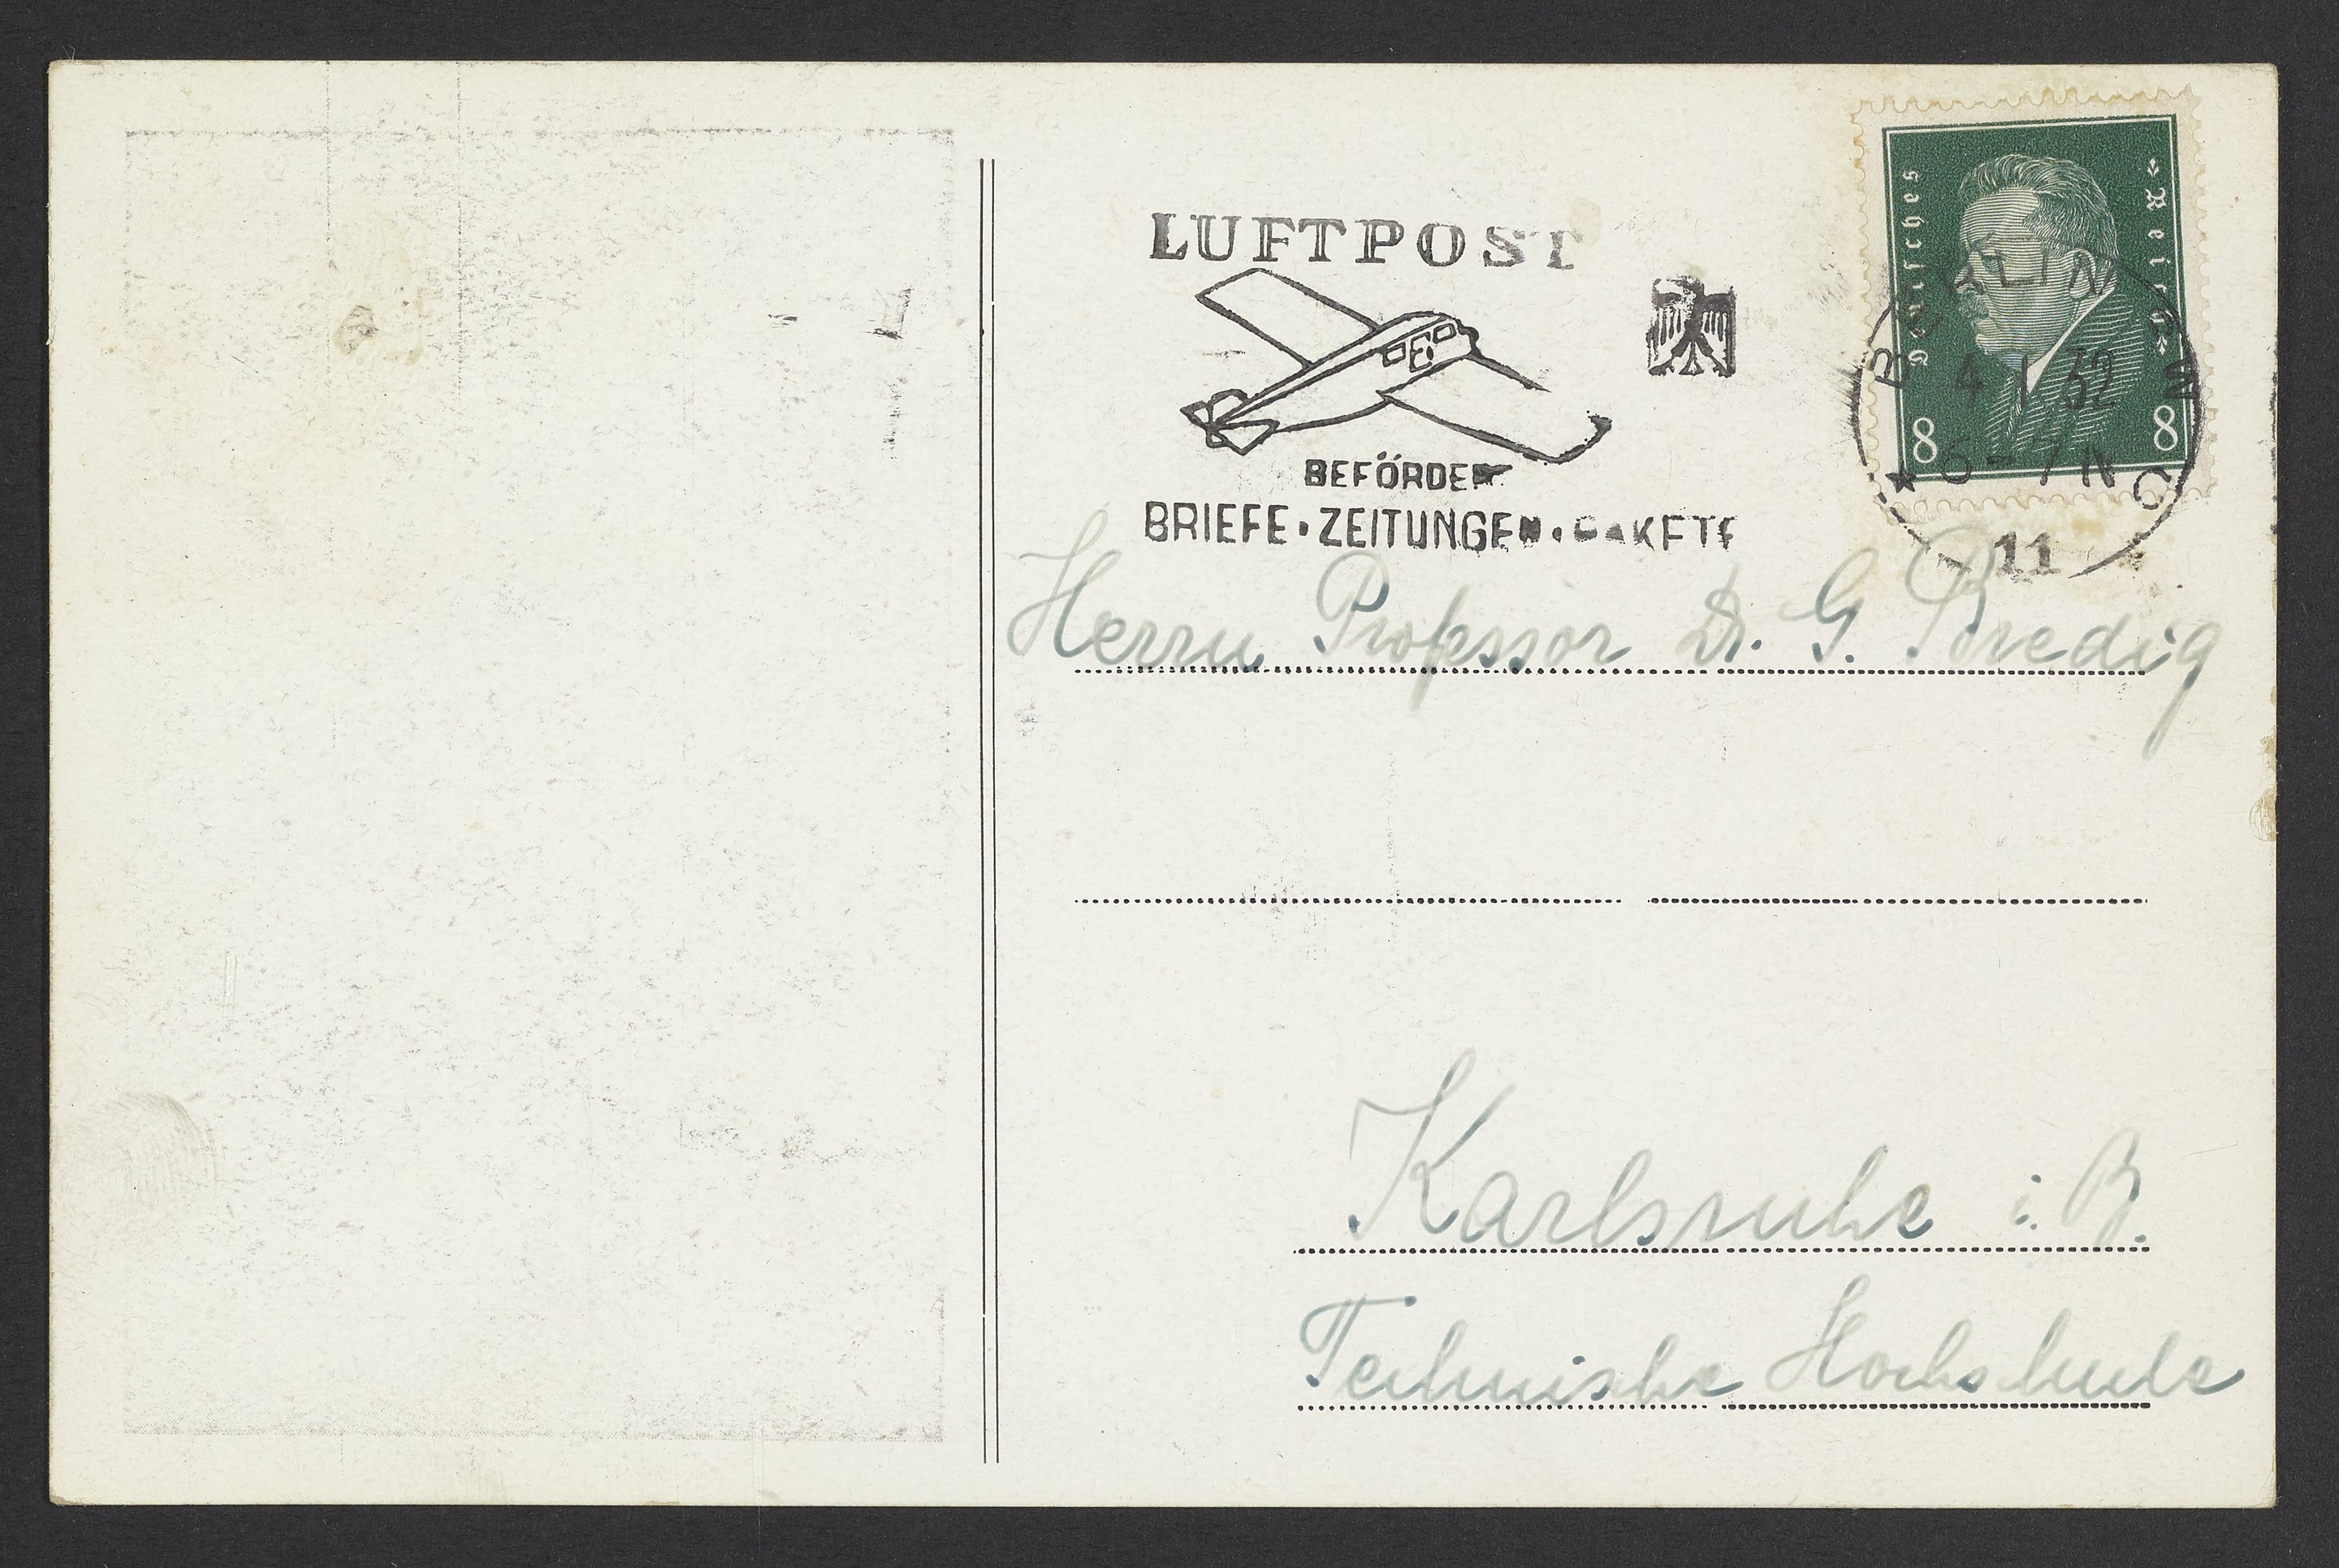 LUFTPOST
BEFÖRDERT
BRIEFE · ZEITUNGEN · PAKETE
Deutsches Reich
8 8
BERLIN NW
4.1.32
6-7N
* C
11
Herrn Professor Dr. G. Bredig
Karlsruhe i. B.
Technische Hochschule